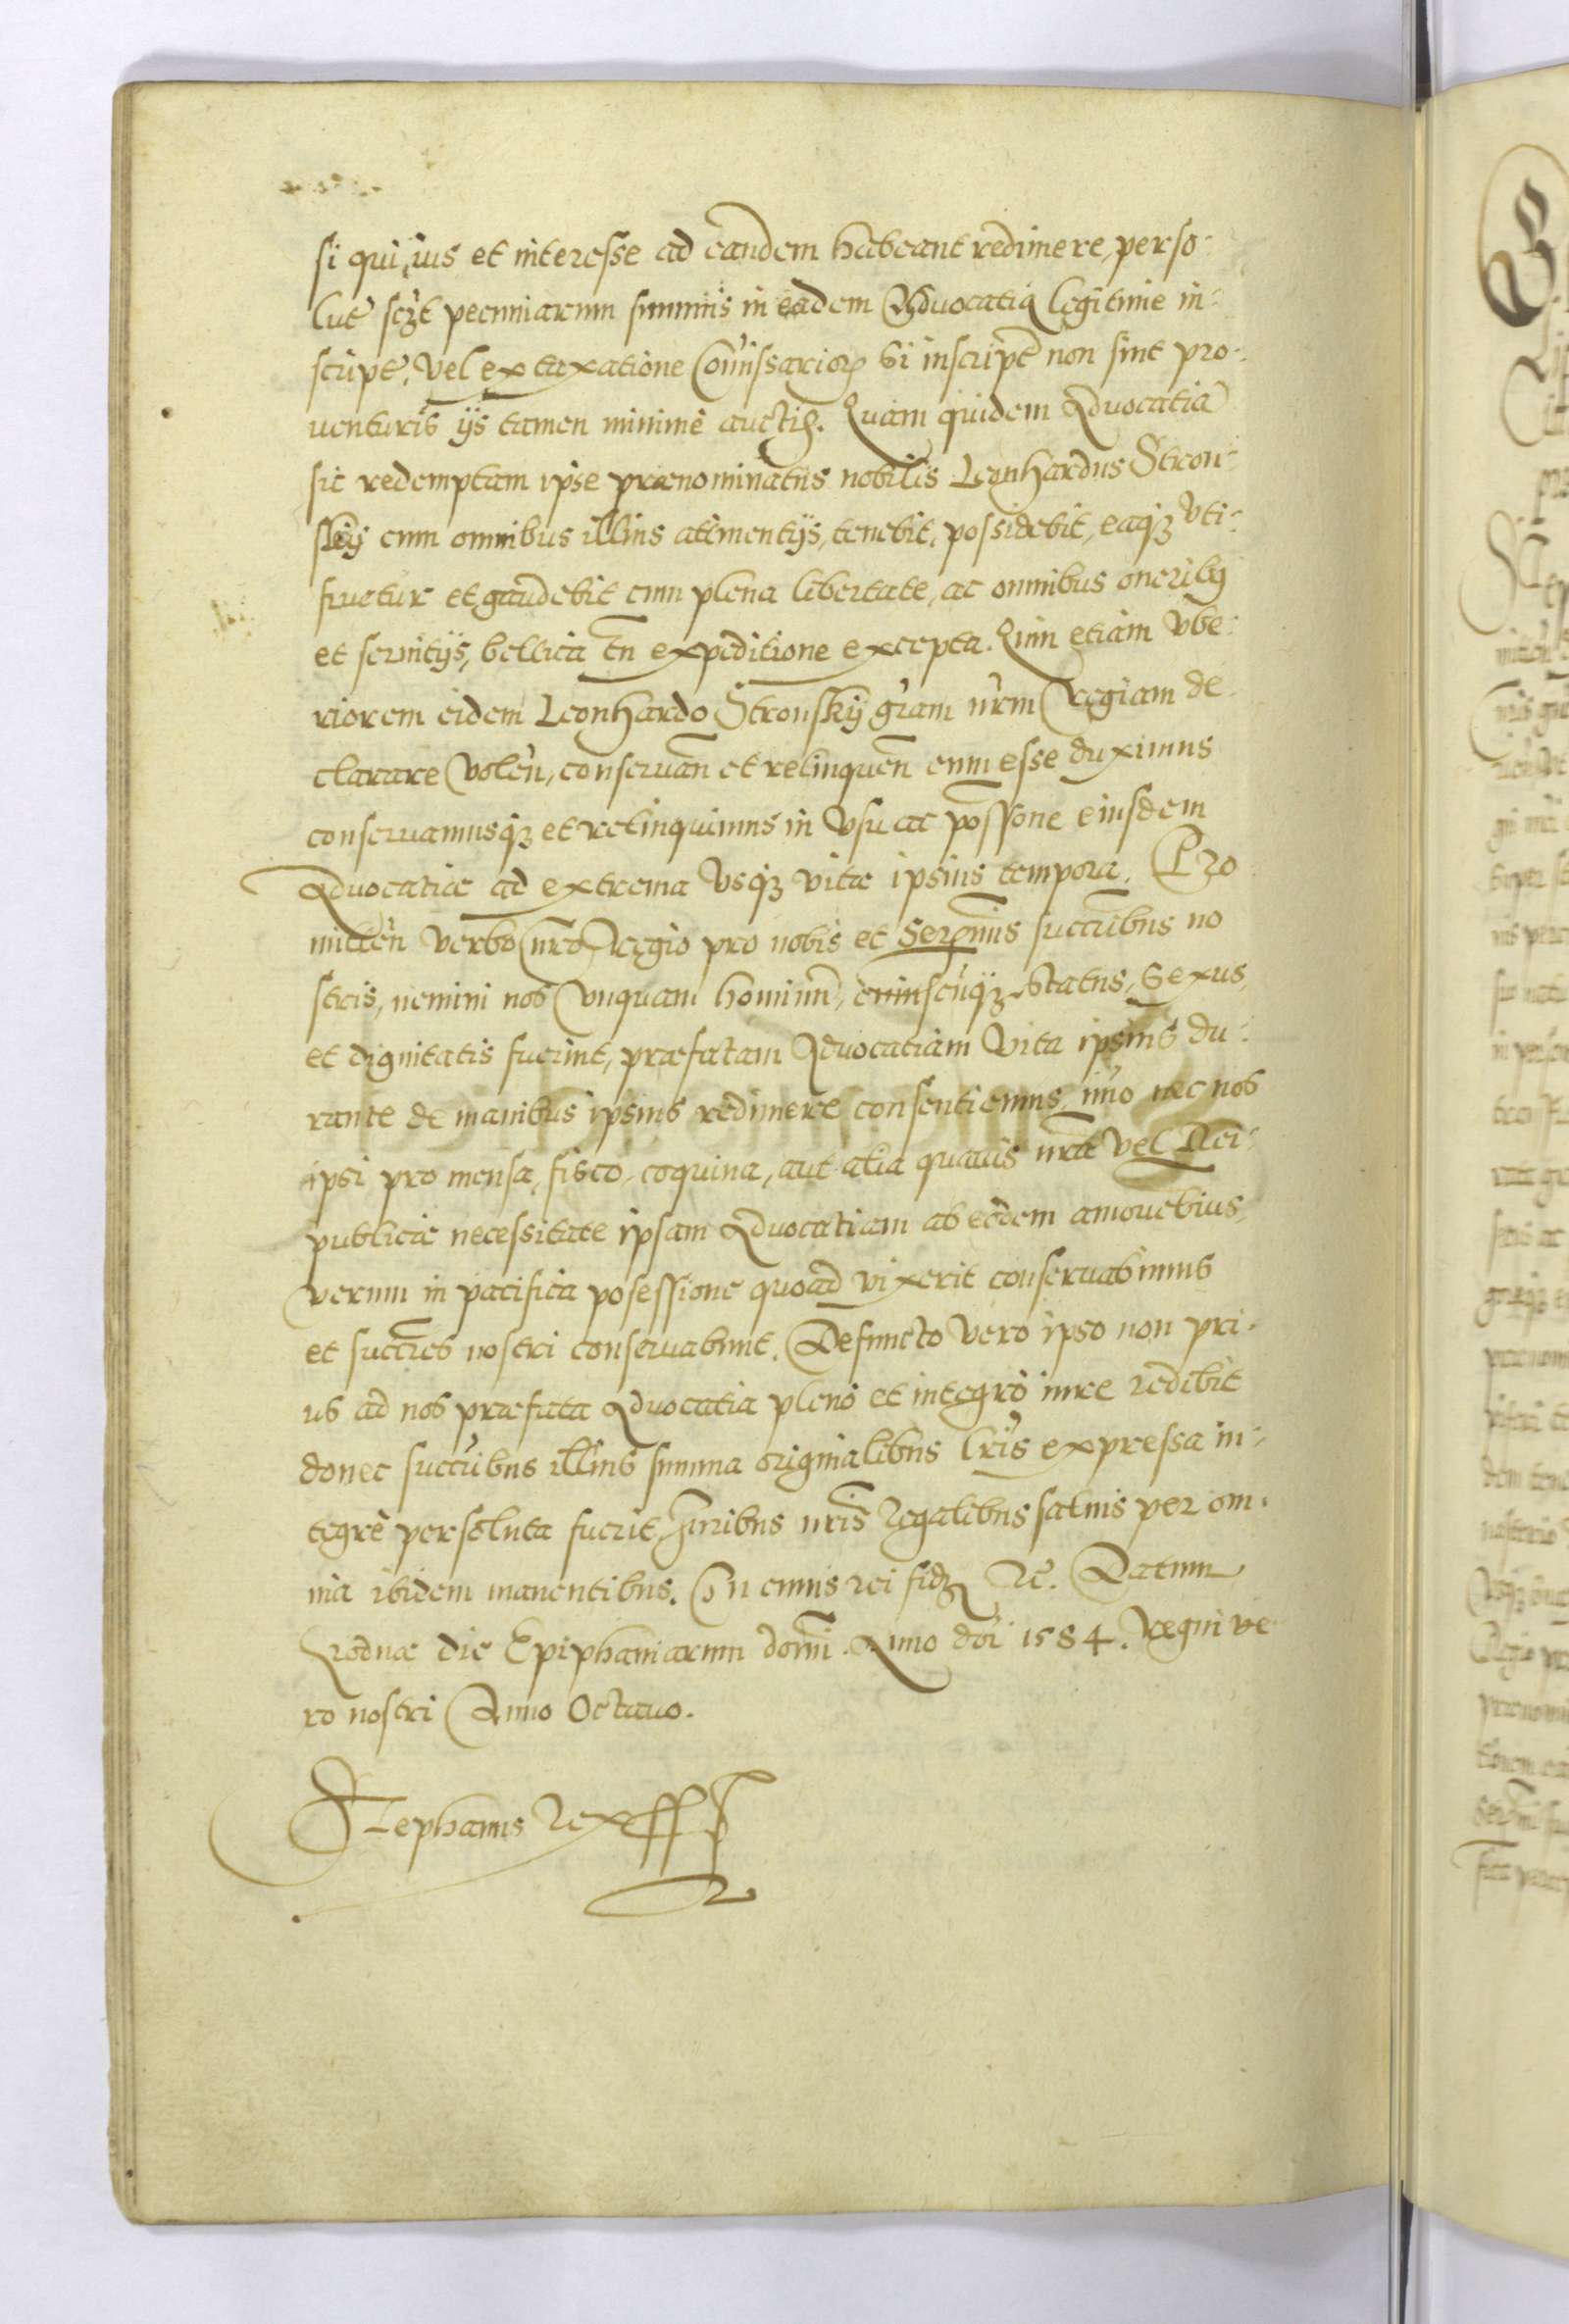 si qui ius et interesse ad eandem habeant redimere, perso-
lut' scz't pecuniarum summis in eadem Advocatia legitime in-
script', vel ex taxatione Com̄issarior' si inscript' non sint pro-
uenturis ijs tamen minimè auctis. Quam quidem Aduocatiā
sic redemptam ipse prænominatus nobilis Leonhardus Strou-
skij cum omnibus illius attinentijs, tenebit, possidebit, eaqz vti-
fruetur et gaudebit cum plena libertate, ac omnibus oneribus
et seruitijs, bellica tn̄ expeditione excepta. Quin etiam vbe-
riorem eidem Leonhardo Strouskij gr̄am nr̄m Regiam de-
clarare volen̄, conseruan̄ et relinquen̄ eum esse duximus
conseruamusqz et relinquimus in vsu ac poss̄one eiusdem
Aduocatiæ ad extrema vsqz vitæ ipsius tempora. Pro-
mitten̄ verbo nr̄o Regio pro nobis et Ser̄mis succr̄ibus no
stris, nemini nos vnquam hominū, cuiuscūqz status, sexus,
et dignitatis fuerint, præfatam Aduocatiam vita ipsius du-
rante de manibus ipsius redimere consentiemus, im̄o nec nos
ipsi pro mensa, fisco, coquina, aut alia quauis nr̄a vel Rei-
publicæ necessitate ipsam Aduocatiam ab eodem amouebius,
verum in pacifica posessione quoad vixerit conseruabimus
et succr̄es nostri conseruabunt. Defuncto vero ipso non pri-
us ad nos præfata Aduocatia pleno et integro iure redibit
donec succr̄ibus illius summa originalibus lr̄is expressa in-
tegrè persoluta fuerit, Iuribus nr̄is Regalibus saluis per om-
nia ibidem manentibus. In cuius rei fidz &c. Datum
Grodnæ die Epiphaniarum domi. Anno doi 1584. Regni ve-
ro nostri Anno Octauo.
Stephanus Rex ss